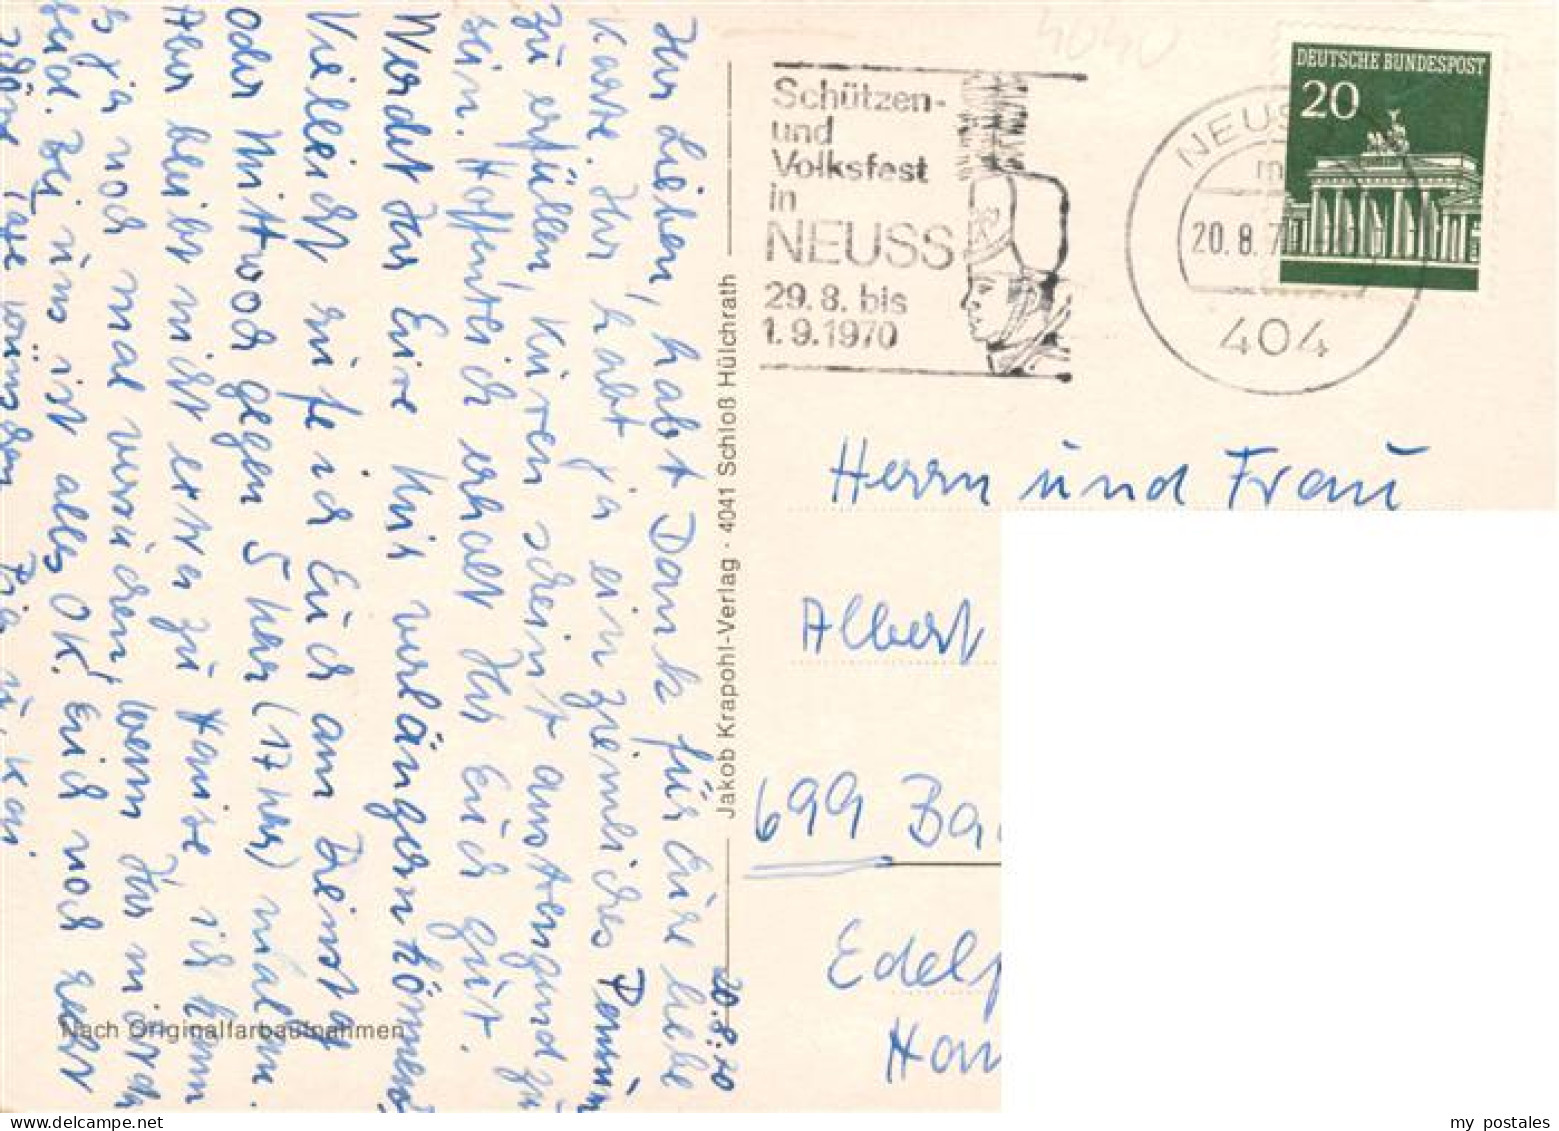 4040
DEUTSCHE BUNDESPOST
20
Schützen-
und
Volksfest
in
NEUSS
29.8. bis
1.9.1970
NEUSS
m
20.8.7
404
Herrn und Frau
Albert
699 Ba
Edelf
Hau
Jakob Krapohl-Verlag · 4041 Schloß Hülchrath
Nach Originalfarbaufnahmen
20.8.70
Ihr Lieben, habt Dank für Eure liebe
Karte. Ihr habt ja ein ziemliches
zu erfüllen, Kuren scheint anstrengend zu
sein. Hoffentlich erholt Ihr Euch gut.
Werdet Ihr Eure Kur verlängern können
Vielleicht rufe ich Euch am Dienstag
oder Mittwoch gegen 5 Uhr (17 Uhr) mal an.
Aber bleibt nicht extra zu Hause, ich kann
es ja noch mal versuchen, wenn Ihr nicht da
seid. Bei uns ist alles OK. Euch noch sehr
schöne Tage wünschen
my postales